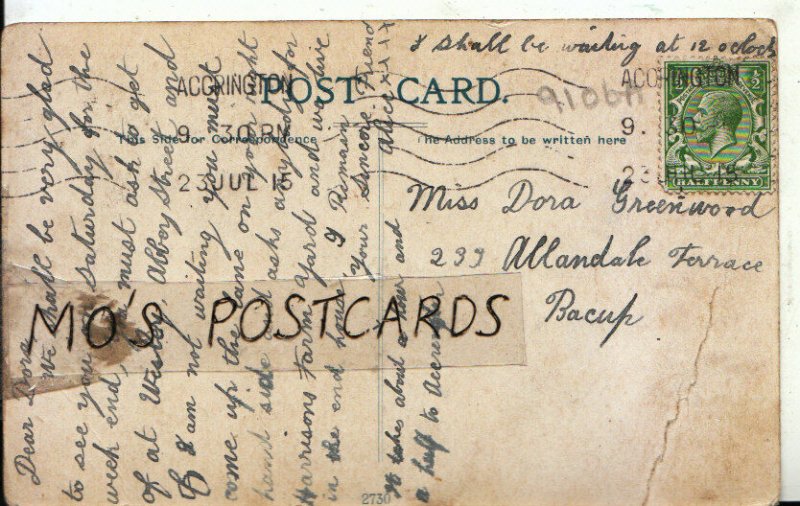 & Shall be waiting at 12 oclock
ACCRINGTON
9. 30 PM
23 JUL 15
ACCRINGTON
9. 30
POST CARD.
91067A
This Side for Correspondence
The Address to be written here
HALFPENNY
Miss Dora Greenwood
299 Allandale Terrace
Bacup
Dear Dora
We shall be very glad
to see you Saturday for the
week end, must ask to get
of at Weston, Abbey Street and
if I am not waiting you must
come up the same on your right
hand side and asks anybody for
Harrisons Farm Yard and we live
in the end house I Remain
Your Sincere Friend
Alice xxxx
It take about a hour and
a half to Accrington
MO'S POSTCARDS
2730